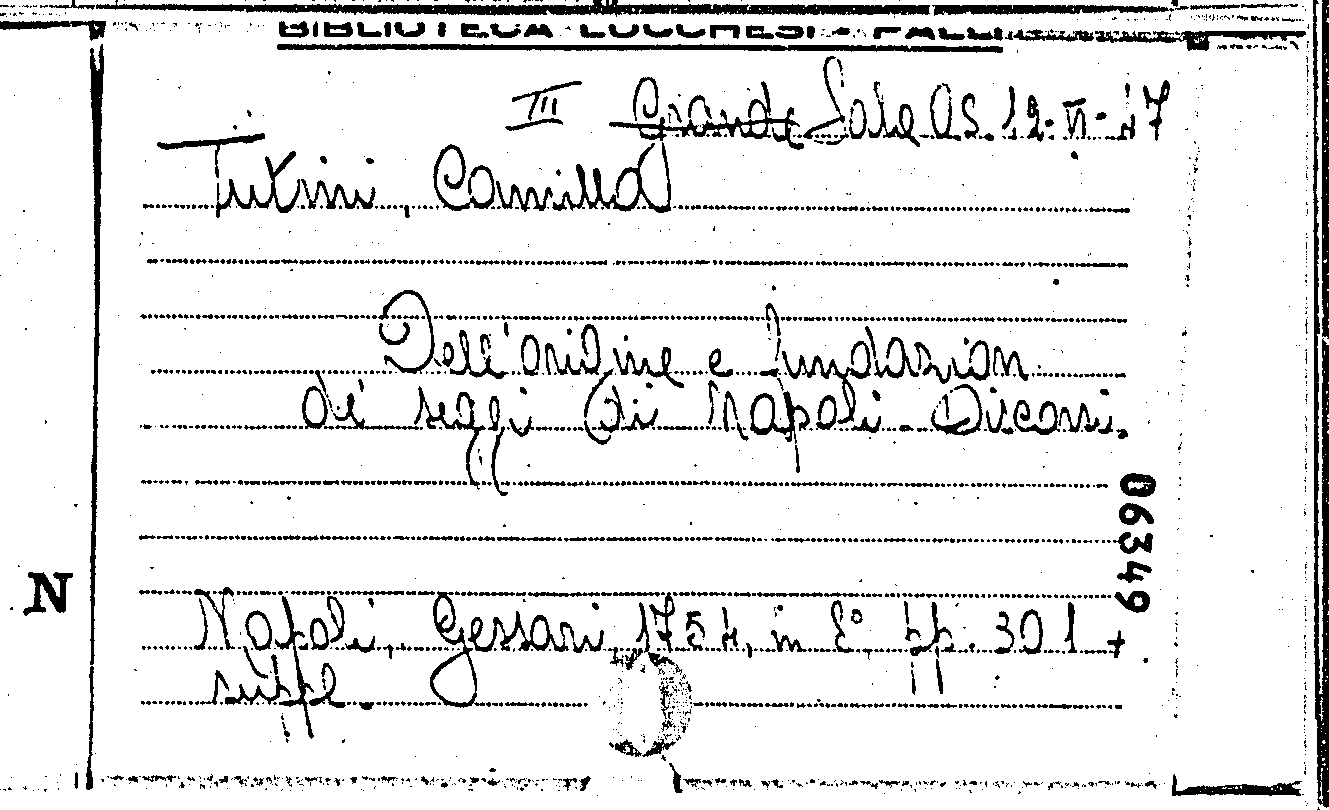 BIBLIOTECA LUCCHESI - PALLI
III Grande Sala OS. 12-VI-17
Tutini, Camillo
Dell'origine e fundazion
de' seggi di Napoli. Discorsi.
06349
N
Napoli, Gessari, 1754, in 8° pp. 301 +
suppl.